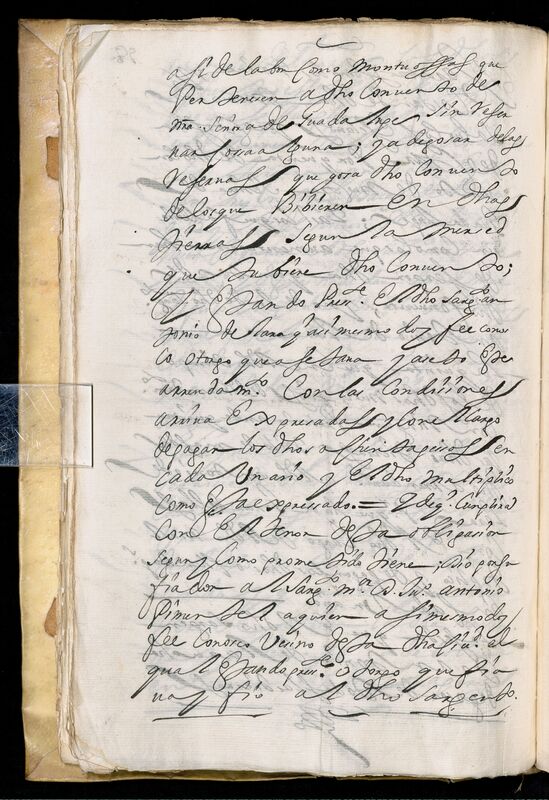 asi de labor Como montuossas que
Pertenesen a dho Convento de
nra. Señora de Guadalupe sin reser
uar cossa alguna; ya de gosar delas
reseruas que gosa dho Convento
de los que Bibieren En dhas
tierras segun la merced
que tubiere dho Convento;
Y Estando press.te El dho sarg.to an
tonio de lara q asimesmo doy fee cono
co otorgo que asetaua y aseto Este
arrendam.to Con las Condisiones
arriua Expresadas y con el cargo
de pagar los dhos treinta pesos en
cada Un año y El dho multiplico
como Esta expressado. = Y de q. Cunplira
Con El tenor desta obligasion
segun y Como prometido tiene; dio por su
fiador al Sarg.to m.r D. Ju.o antonio
Pimentel a quien asimesmo doy
fee Conosco Vecino desta dha siu.d el
qual Estando pres.te otorgo que fia
ua y fio al dho Sargento.